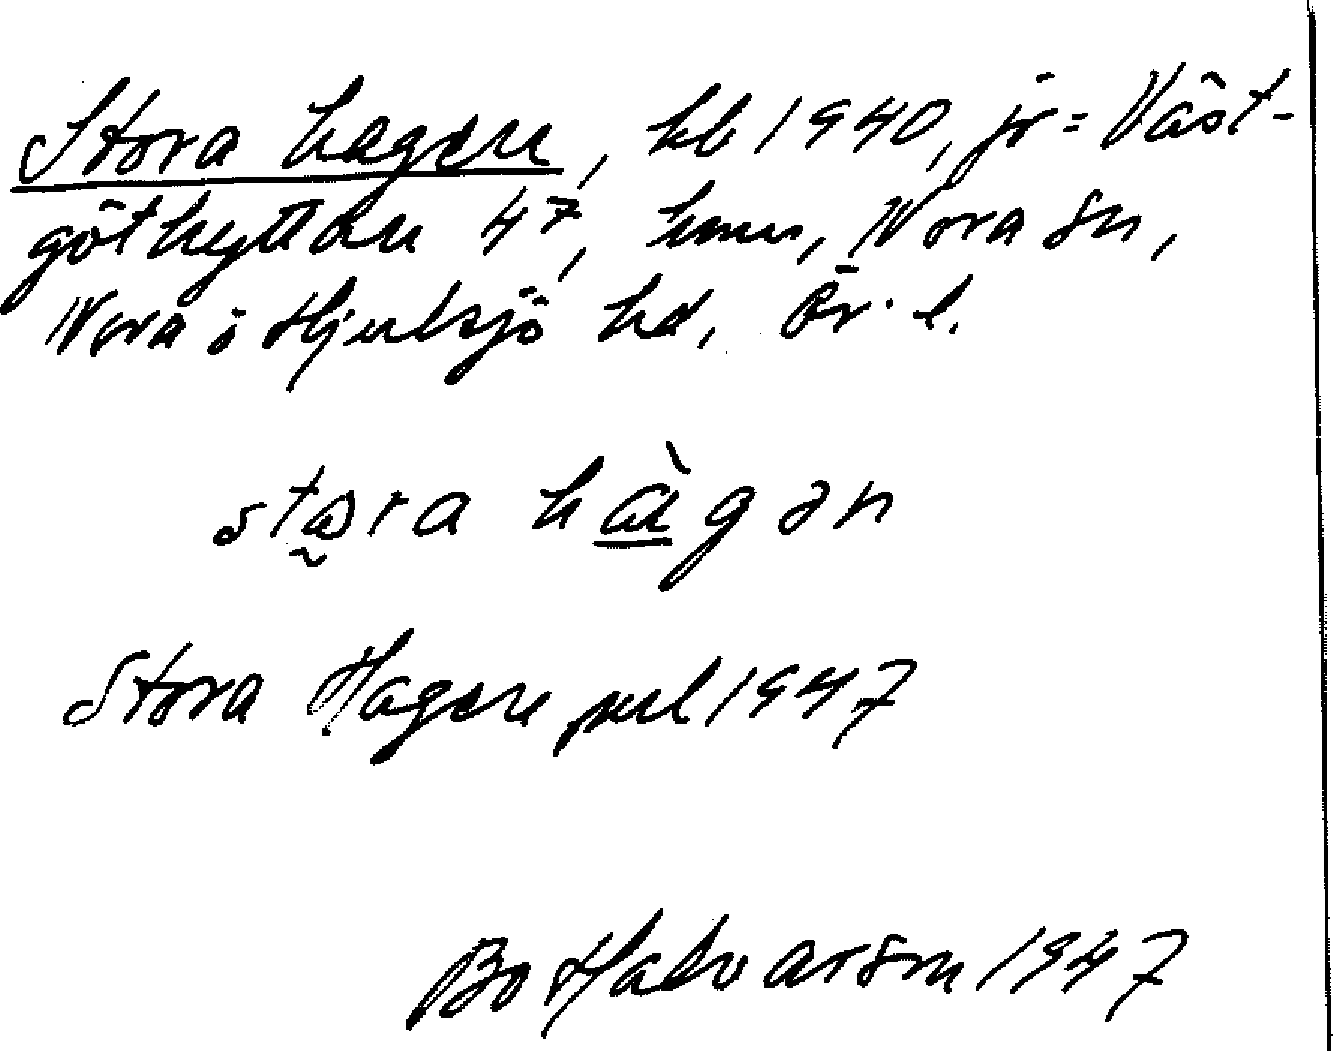 Stora hagen, kb 1940, jr = Väst-
göthyttan 4⁷, hmn, Nora sn,
Nora o Hjulsjö hd, Ör. l.
stora hàgən
Stora Hagen jrl 1947
Bo Halvarson 1947